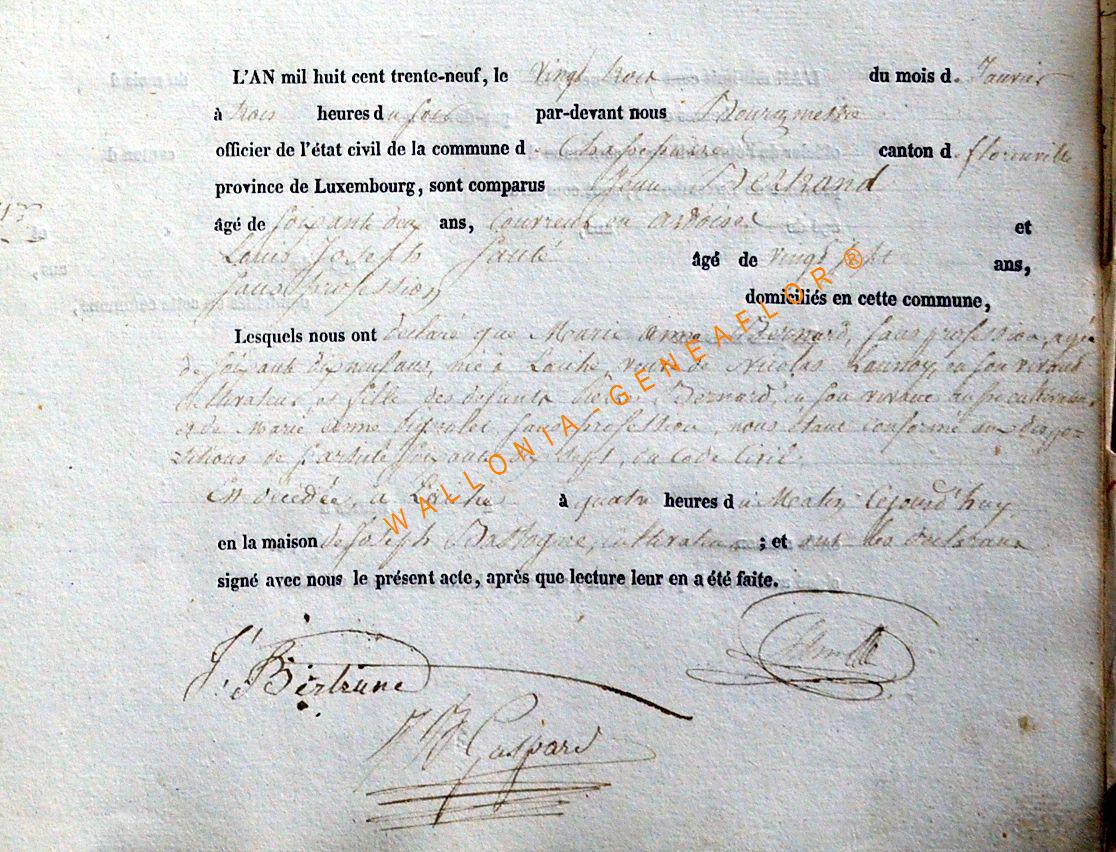 L'AN mil huit cent trente-neuf, le vingt trois du mois de Janvier
à trois heures du soir par-devant nous Bourgmestre
officier de l'état civil de la commune de Chassepierre canton de florenville
province de Luxembourg, sont comparus Jean Bertrand
âgé de soixante deux ans, couvreur en ardoises et
Louis Joseph âgé de vingt sept ans,
sans profession domiciliés en cette commune,
Lesquels nous ont déclaré que Marie anne Bernard, sans profession, agée
de soixante dix neuf ans, née à Laiche, veuve de Nicolas Launoy, en son vivant
cultivateur, et fille des défunts Bernard, en son vivant aussi cultivateur
et de Marie Anne sans profession, nous étant conformé aux dispo-
sitions de l'article soixante dix sept, du Code Civil.
Est décédée, à Laiche à quatre heures du Matin Cejourd'huy
en la maison de Joseph Bastogne, cultivateur ; et ont les déclarans
signé avec nous le présent acte, après que lecture leur en a été faite.
J. Bertrand
Gaspard
WALLONIA-GENEAFLOR ®